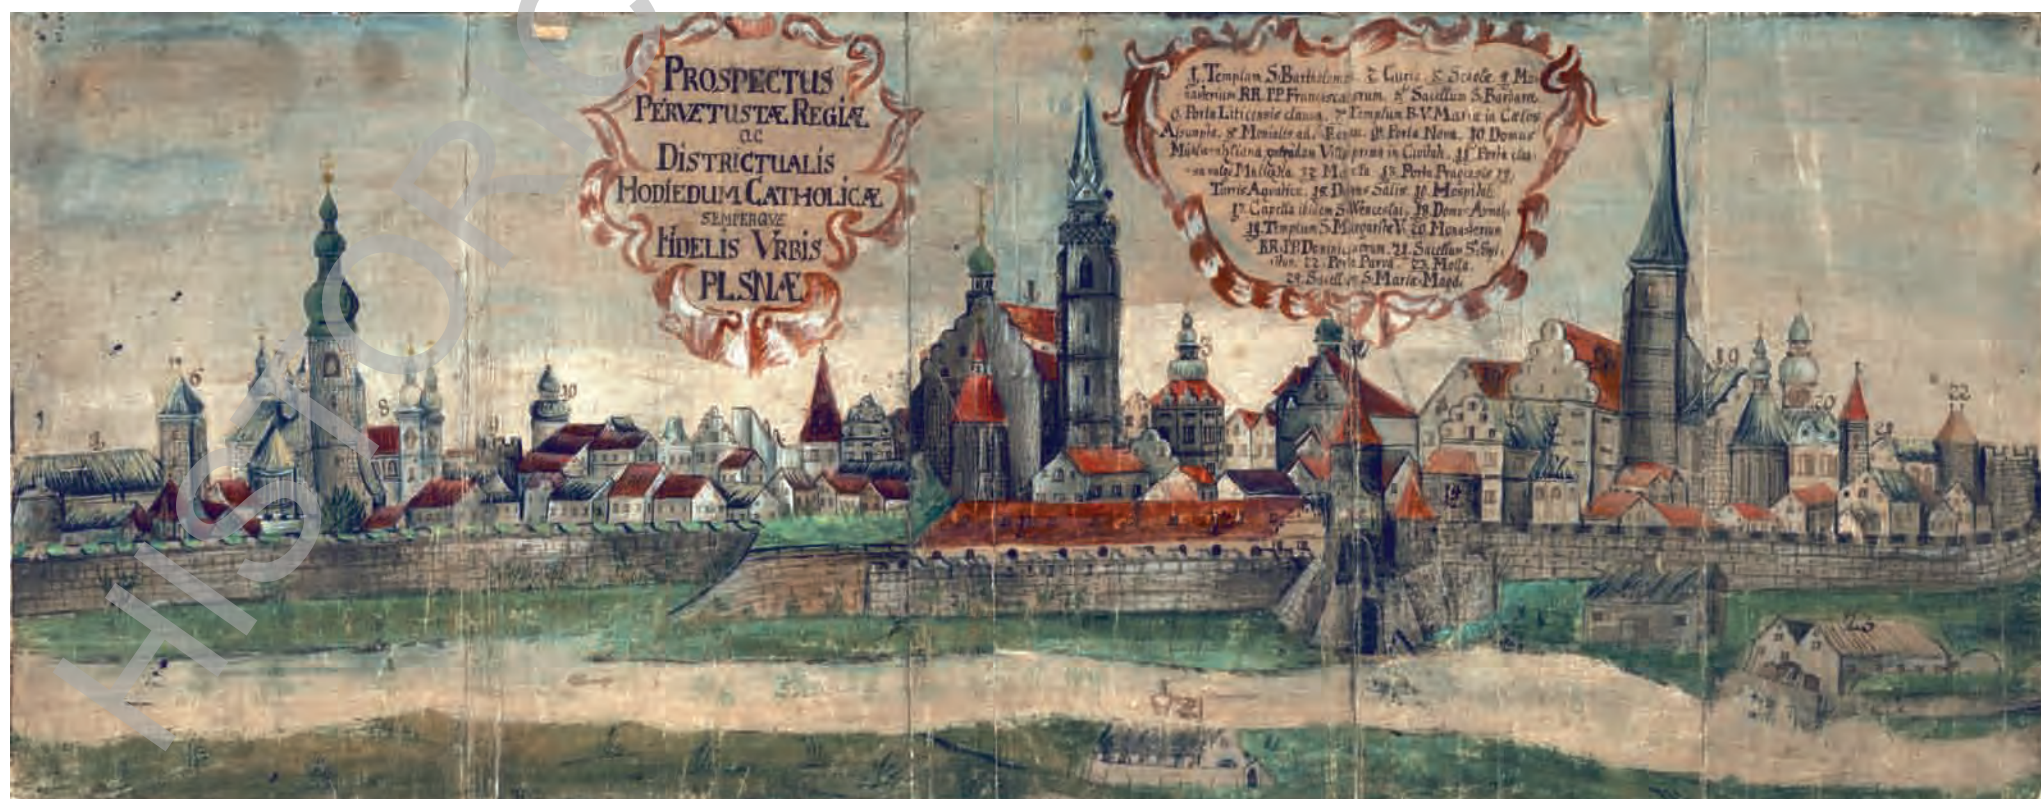 PROSPECTUS
PERVETUSTÆ REGIÆ
ac
DISTRICTUALIS
HODIEDUM CATHOLICÆ
SEMPERQVE
FIDELIS VRBIS
PLSNÆ
1. Templum S. Bartholomei 2. Curia 3. Scholæ 4. Mo-
nasterium RR. PP. Franciscanorum. 5. Sacellum S. Barbaræ
6. Porta Liticensis clausa. 7. Templum B. V. Mariæ in Cœlos
Assumptæ. 8. Moniales ad. 9. Porta Nova. 10. Domus
Villa prima in Civitate. 11. Porta
12. 13. Porta Pragensis 14.
Turris Aquatica. 15. Domus Salis. 16. Hospitale
17. Capella ibidem S. Wenceslai. 18. Domus
19. Templum S. Margaritæ V. 20. Monasterium
RR. PP. Dominicanorum. 21. Sacellum S.
22. Porta Parva 23. Molla.
24. Sacellum S. Mariæ Magd.
6
8
10
3
19
20
22
14
23
HIST ORG